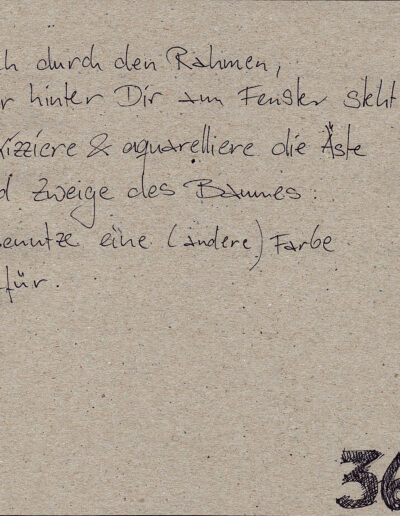 ch durch den Rahmen,
r hinter Dir am Fenster steht
kizziere & aquarelliere die Äste
d Zweige des Baumes.
enutze eine (andere) Farbe
für.
36